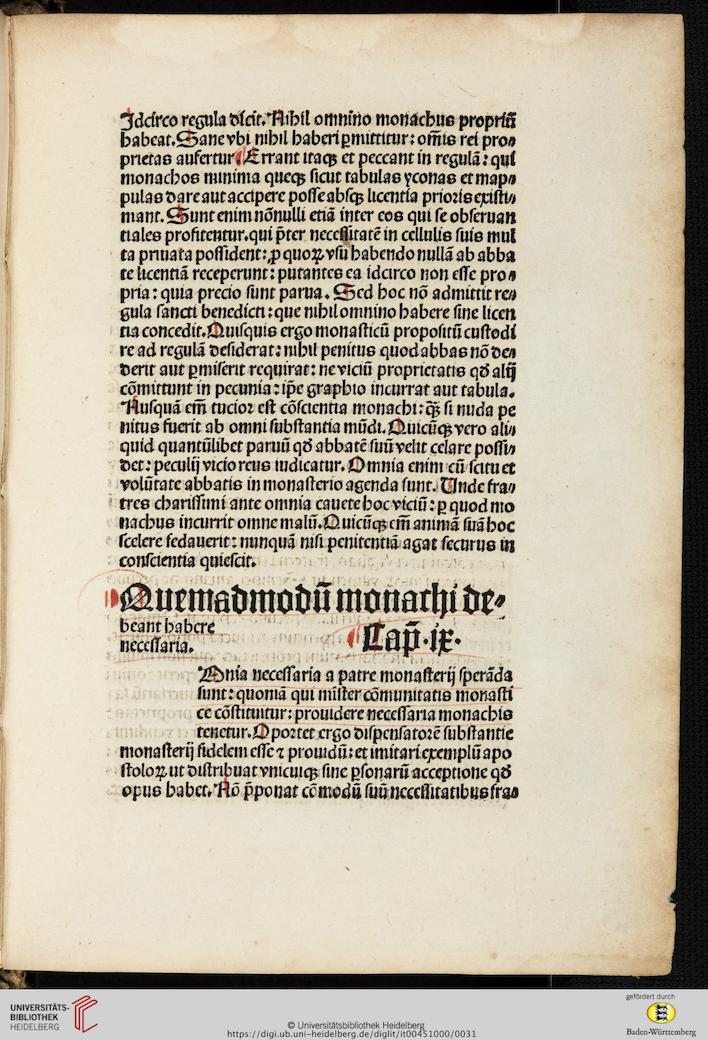 Idcirco regula dicit. Nihil omnino monachus propriū
habeat. Sane vbi nihil haberi ꝑmittitur: om̄is rei pro⸗
prietas aufertur. Errant itaqꝫ et peccant in regulā: qui
monachos minima queqꝫ sicut tabulas yconas et map⸗
pulas dare aut accipere posse absqꝫ licentia prioris existi⸗
mant. Sunt enim nōnulli etiā inter eos qui se obseruan
tiales profitentur. qui p̄ter necessitatē in cellulis suis mul
ta priuata possident: ꝓ quoꝝ vsu habendo nullā ab abba
te licentiā receperunt: putantes ea idcirco non esse pro⸗
pria: quia precio sunt parua. Sed hoc nō admittit re⸗
gula sancti benedicti: que nihil omnino habere sine licen
tia concedit. Quisquis ergo monasticū propositū custodi
re ad regulā desiderat: nihil penitus quod abbas nō de⸗
derit aut ꝑmiserit requirat: ne viciū proprietatis qd̄ alij
cōmittunt in pecunia: ip̄e graphio incurrat aut tabula.
Nusquā em̄ tucior est cōscientia monachi: qꝫ si nuda pe
nitus fuerit ab omni substantia mūdi. Quicūqꝫ vero ali⸗
quid quantūlibet paruū qd̄ abbatē suū velit celare possi⸗
det: peculij vicio reus iudicatur. Omnia enim cū scitu et
volūtate abbatis in monasterio agenda sunt. Unde fra⸗
tres charissimi ante omnia cauete hoc viciū: ꝑ quod mo
nachus incurrit omne malū. Quicūqꝫ em̄ animā suā hoc
scelere fedauerit: nunquā nisi penitentiā agat securus in
conscientia quiescit.
Quemadmodū monachi de⸗
beant habere
necessaria. Cap̄. ix.
Omnia necessaria a patre monasterij sperāda
sunt: quoniā qui mīster cōmunitatis monasti
ce cōstituitur: prouidere necessaria monachis
tenetur. Oportet ergo dispensatorē substantie
monasterij fidelem esse ⁊ prouidū: et imitari exemplū apo
stoloꝝ ut distribuat vnicuiqꝫ sine ꝑsonarū acceptione qd̄
opus habet. Nō p̄ponat cōmodū suū necessitatibus fra⸗
UNIVERSITÄTS-
BIBLIOTHEK
HEIDELBERG
© Universitätsbibliothek Heidelberg
https://digi.ub.uni-heidelberg.de/diglit/it00451000/0031
gefördert durch
Baden-Württemberg